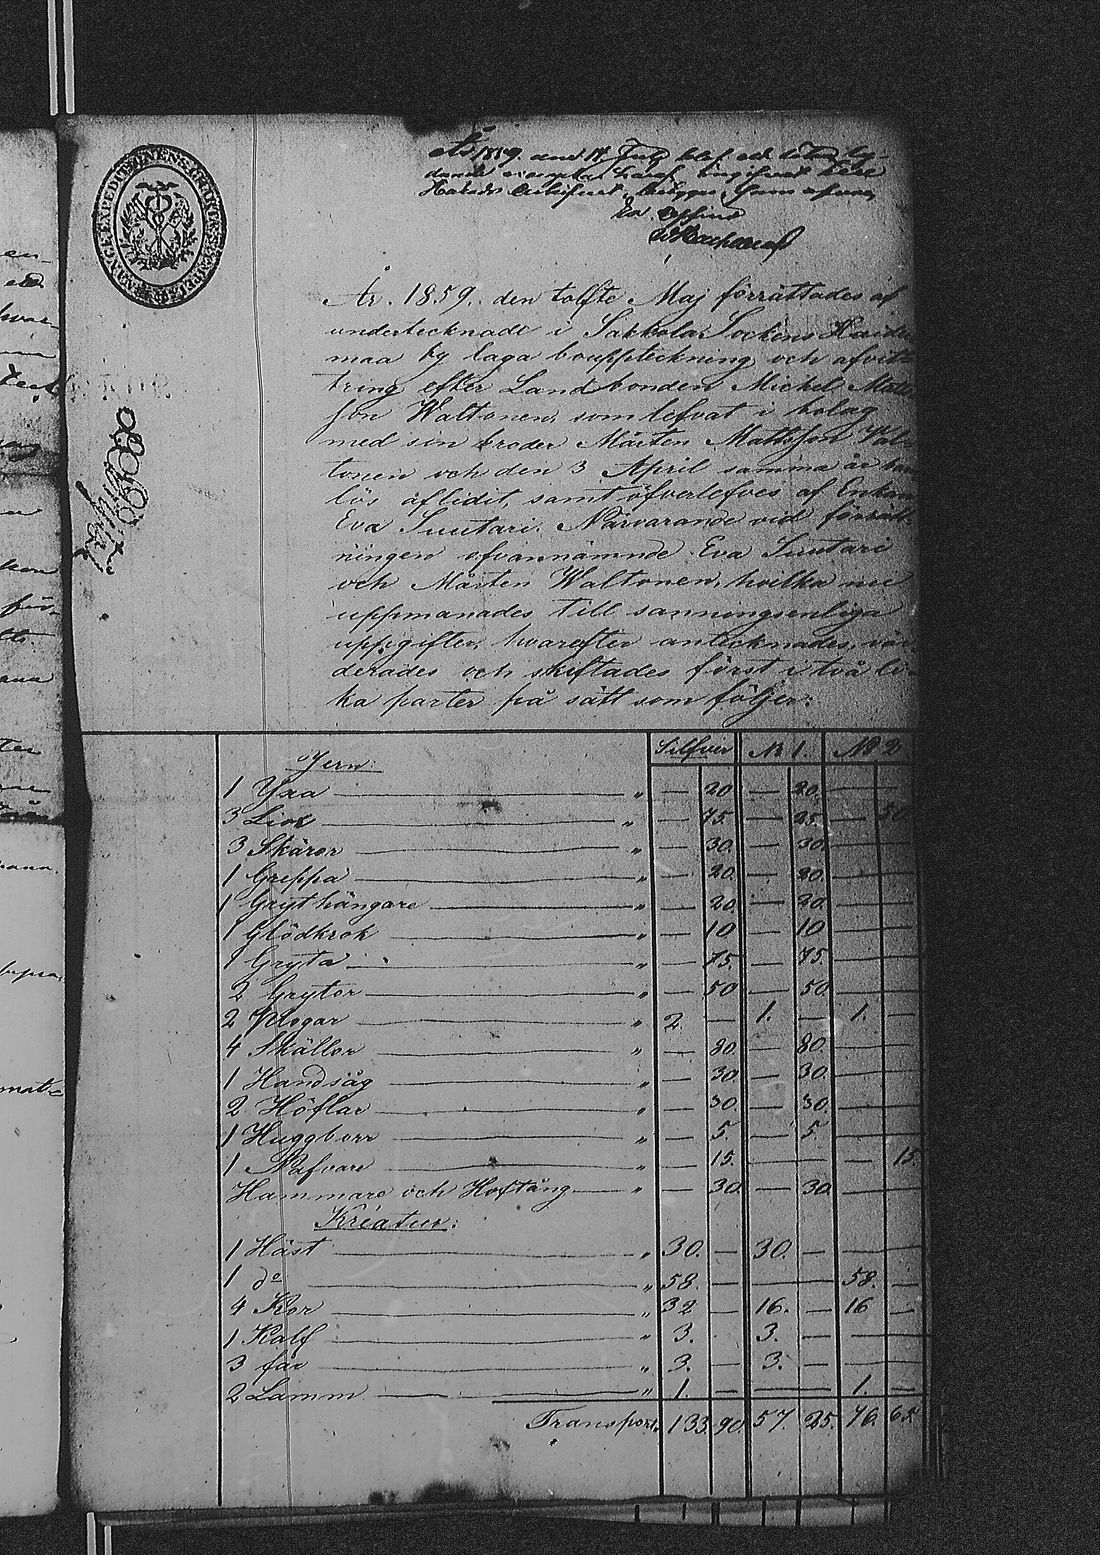 År 1859. den
En
År 1859. den tolfte Maj förrättades af
undertecknade i Sakkola Sockens
maa by laga bouppteckning och afvitt
tring efter Landbonden Michel Matts
son Waltonen, som lefvat i bolag
med sin broder Mårten Mattsson Val
tonen och den 3 April samma år barn
lös aflidit, samt öfverlefves af Enkan
Eva Suutari. Närvarande vid förrätt
ningen ofvannämnde Eva Suutari
och Mårten Waltonen, hvilka nu
uppmanades till sanningsenliga
uppgifter, hvarefter antecknades, vär
derades och skiftades först i två li
ka parter på sätt som följer:
Silfver № 1. № 2
Jern:
1 Yxa " — 20. — 20. — —
3 Liar " — 75. — 25. — 50
3 Skäror " — 30. — 30. — —
1 Greppa " — 20. — 20. — —
1 Grythängare " — 20. — 20. — —
1 Glödkrok " — 10 — 10 — —
1 Gryta " — 75. — 75. — —
2 Grytor " — 50 — 50 — —
2 Plogar " 2. — 1. — 1. —
4 Skällor " — 80. — 80. — —
1 Handsåg " — 30 — 30. — —
2 Höflar " — 30. — 30. — —
1 Huggborr " — 5. — 5. — —
1 Nafvare " — 15. — — — 15.
Hammare och Hoftång " — 30 — 30 — —
Kreatur:
1 Häst " 30. — 30. — — —
1 do " 58. — — — 58. —
4 Kor " 32 — 16. — 16 —
1 Kalf " 3. 3. — — —
3 får " 3. — 3. — — —
2 Lamm " 1. — — — 1. —
Transport 133. 90. 57. 25. 76. 65.